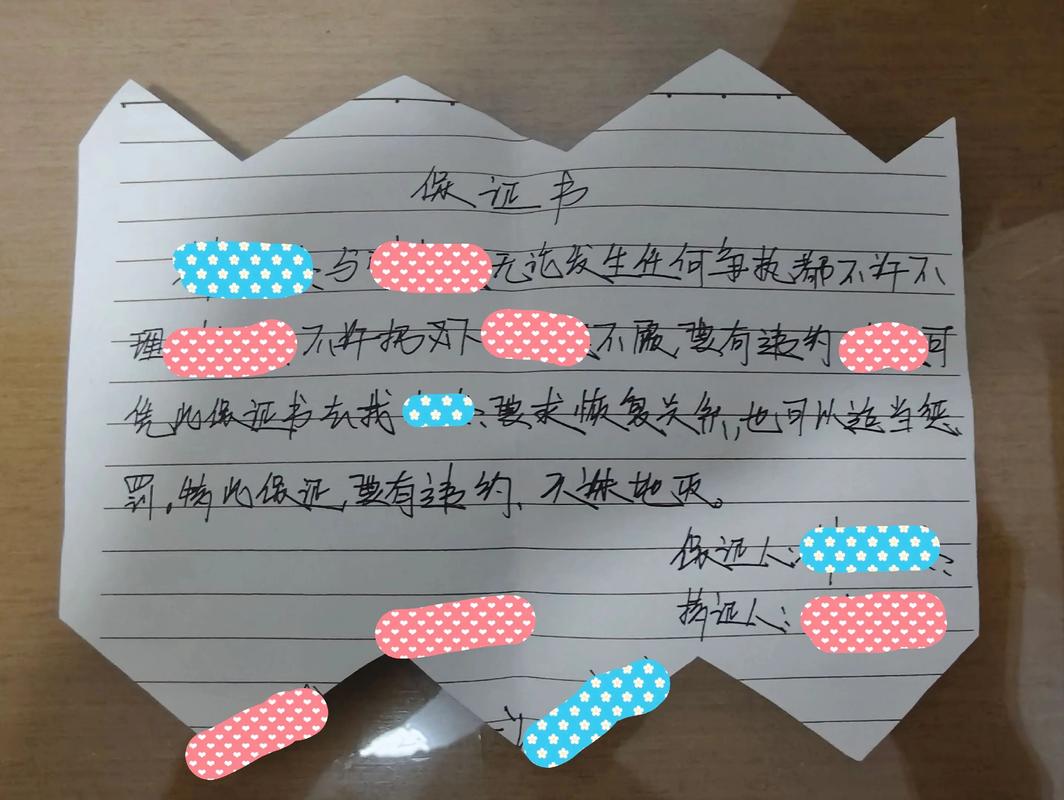 保证书
与 无论发生任何争执都不许不
理 不许把 不服,要有违约 可
凭此保证书去找 要求恢复关系,也可以适当惩
罚,特此保证,要有违约,不 地 。
保证人:
持证人: